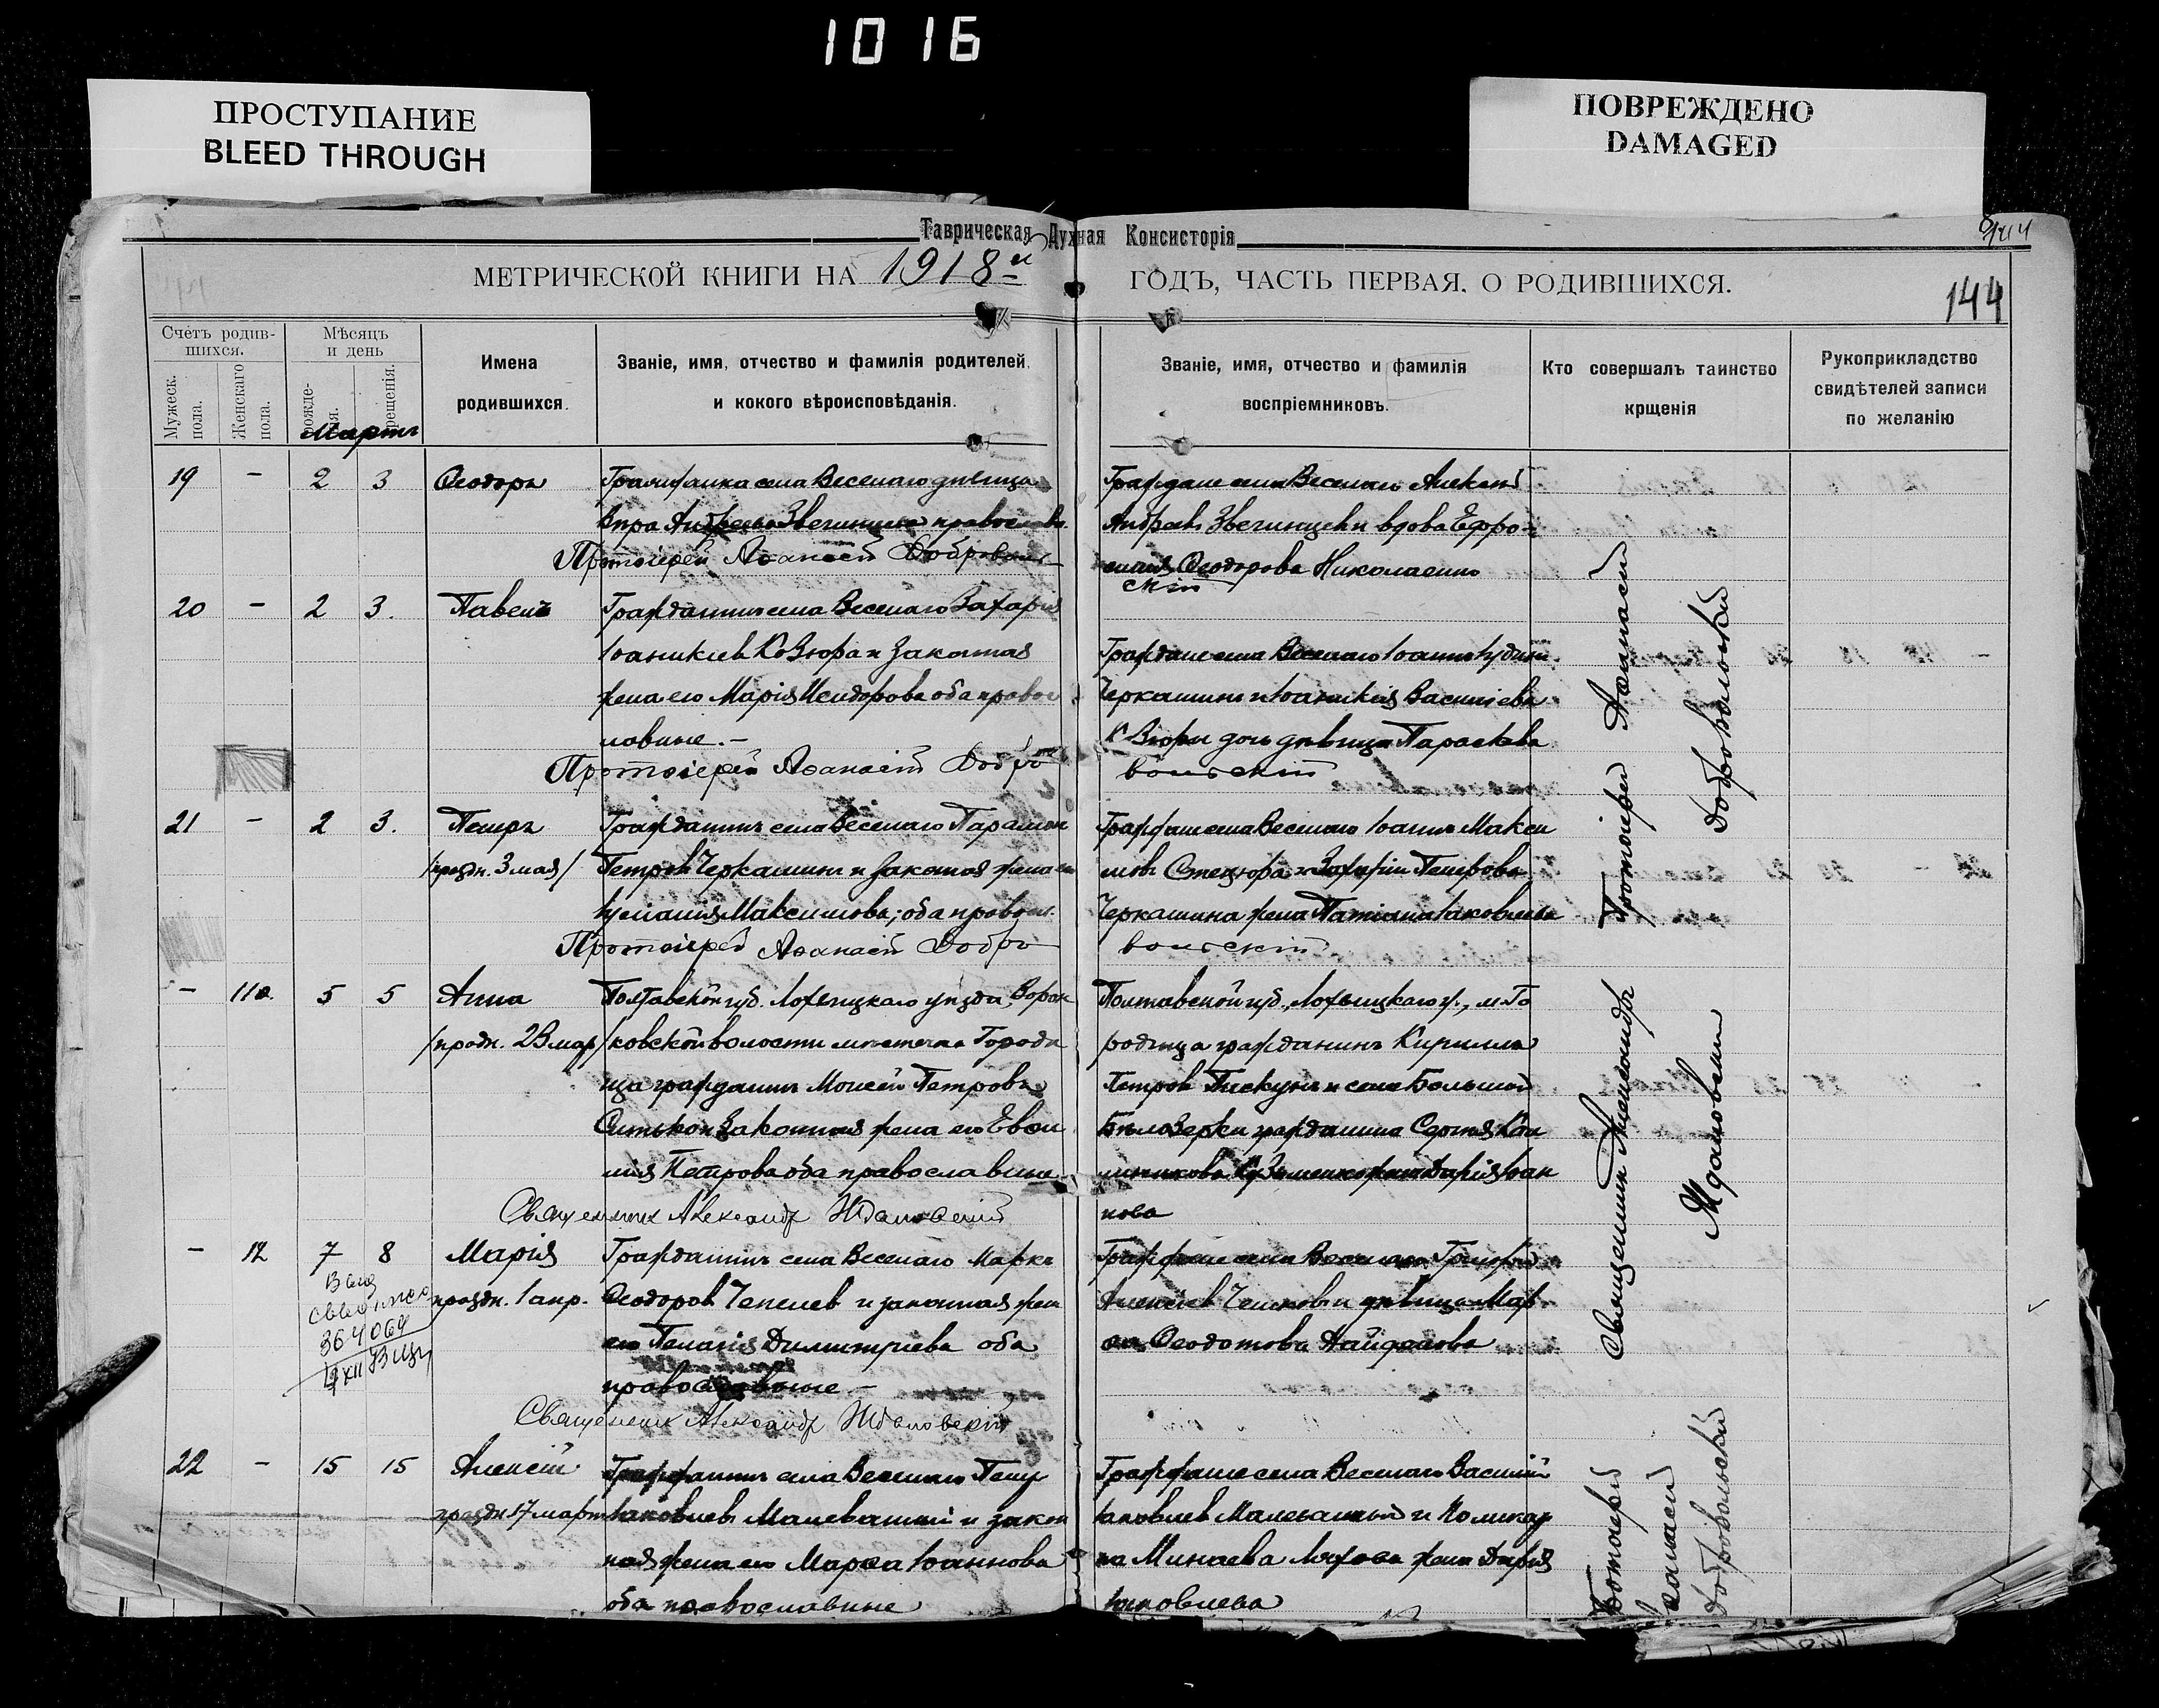 1016
ПРОСТУПАНИЕ
BLEED THROUGH
ПОВРЕЖДЕНО
DAMAGED
Таврическая Духная Консисторія
МЕТРИЧЕСКОЙ КНИГИ НА 1918й ГОДЪ, ЧАСТЬ ПЕРВАЯ, О РОДИВШИХСЯ.
144
Счетъ родив-
шихся.
Мужеск.
пола.
Женскаго
пола.
Мѣсяцъ
и день
рожде-
ія.
рещенія.
Мартъ
Имена
родившихся.
Званіе, имя, отчество и фамилія родителей,
и кокого вѣроисповѣданія.
Званіе, имя, отчество и фамилія
воспріемниковъ.
Кто совершалъ таинство
крщенія
Рукоприкладство
свидѣтелей записи
по желанію
19 - 2 3 Ѳеодоръ
Гражданка села Веселаго дѣвица
Вѣра Андреева Звегинцева православн.
Протоіерей Аѳанасій Доброволь
Граждане села Веселаго Алексѣй
Андреевъ Звегинцевъ и вдова Ефро-
синія Ѳеодорова Николаенко
скій
20 - 2 3. Павелъ
Гражданинъ села Веселаго Захарія
Іоаникіевъ Козюра и законная
жена его Марія Исидорова оба право
славные.-
Протоіерей Аѳанасій Добро
Граждане села Веселаго Іоаннъ
Черкашинъ и Іоаникія Васильева
Козюры дочь дѣвица Параскева
вольскій
21 - 2 3. Петръ
/праздн. 3 мая/
Гражданинъ села Веселаго Парамон
Петровъ Черкашинъ и законная жена его
Іуліанія Максимова; оба правосл.
Протоіерей Аѳанасій Добро
Граждане села Веселаго Іоаннъ Макси
мовъ Стецюра и Захаріи Петрова
Черкашина жена Татіана Іаковлева
вольскій
Протоіерей Аѳанасій
Добровольскій
- 11 5 5 Анна
/праздн. 23 мар/
Полтавской губ. Лохвицкаго уѣзда, Ворон
ковской волости мѣстечка Городи
ща гражданинъ Моисей Петровъ
Ситько и законная жена его Евѳи
мія Петрова оба православные
Священникъ Александръ Ждановскій
Полтавской губ., Лохвицкаго у., м. Го
родища гражданинъ Кириллъ
Петровъ Пискунъ и села Большой
Бѣлозерки гражданина Сергія
жена Дарія Іоан
нова
- 12 7 8 Марія
праздн. 1 апр.
364069
Гражданинъ села Веселаго Маркъ
Ѳеодоровъ Чепелев и законная жена
его Пелагія Димитріева оба
православные -
Священникъ Александръ Ждановскій
Граждане села Веселаго Григорій
Алексѣевъ и дѣвица Мар
ѳа Ѳеодотова Найденова
Священникъ Александръ
Ждановскій
22 - 15 15 Алексій
праздн 17 март
Гражданинъ села Веселаго Петръ
Іаковлевъ Малеванный и закон
ная жена его Марѳа Іоаннова
оба православные
Граждане села Веселаго Василій
Іаковлевъ Малеванный и Поликар
па Минаева Ляхова жена Дарія
Іаковлева
Протоіерей
Аѳанасій
Добровольскій